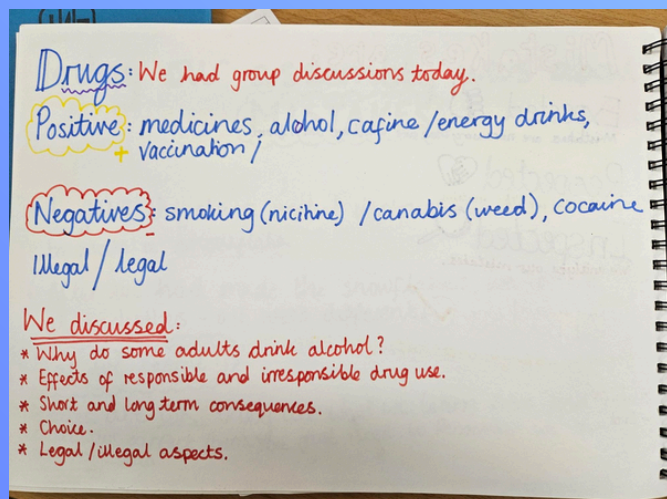 Drugs: We had group discussions today.
Positive: medicines, alohol, cafine / energy drinks,
+ vaccination /
Negatives: smoking (nicitine) / canabis (weed), cocaine
Illegal / legal
We discussed:
* Why do some adults drink alcohol?
* Effects of responsible and irresponsible drug use.
* Short and long term consequences.
* Choice.
* Legal / illegal aspects.